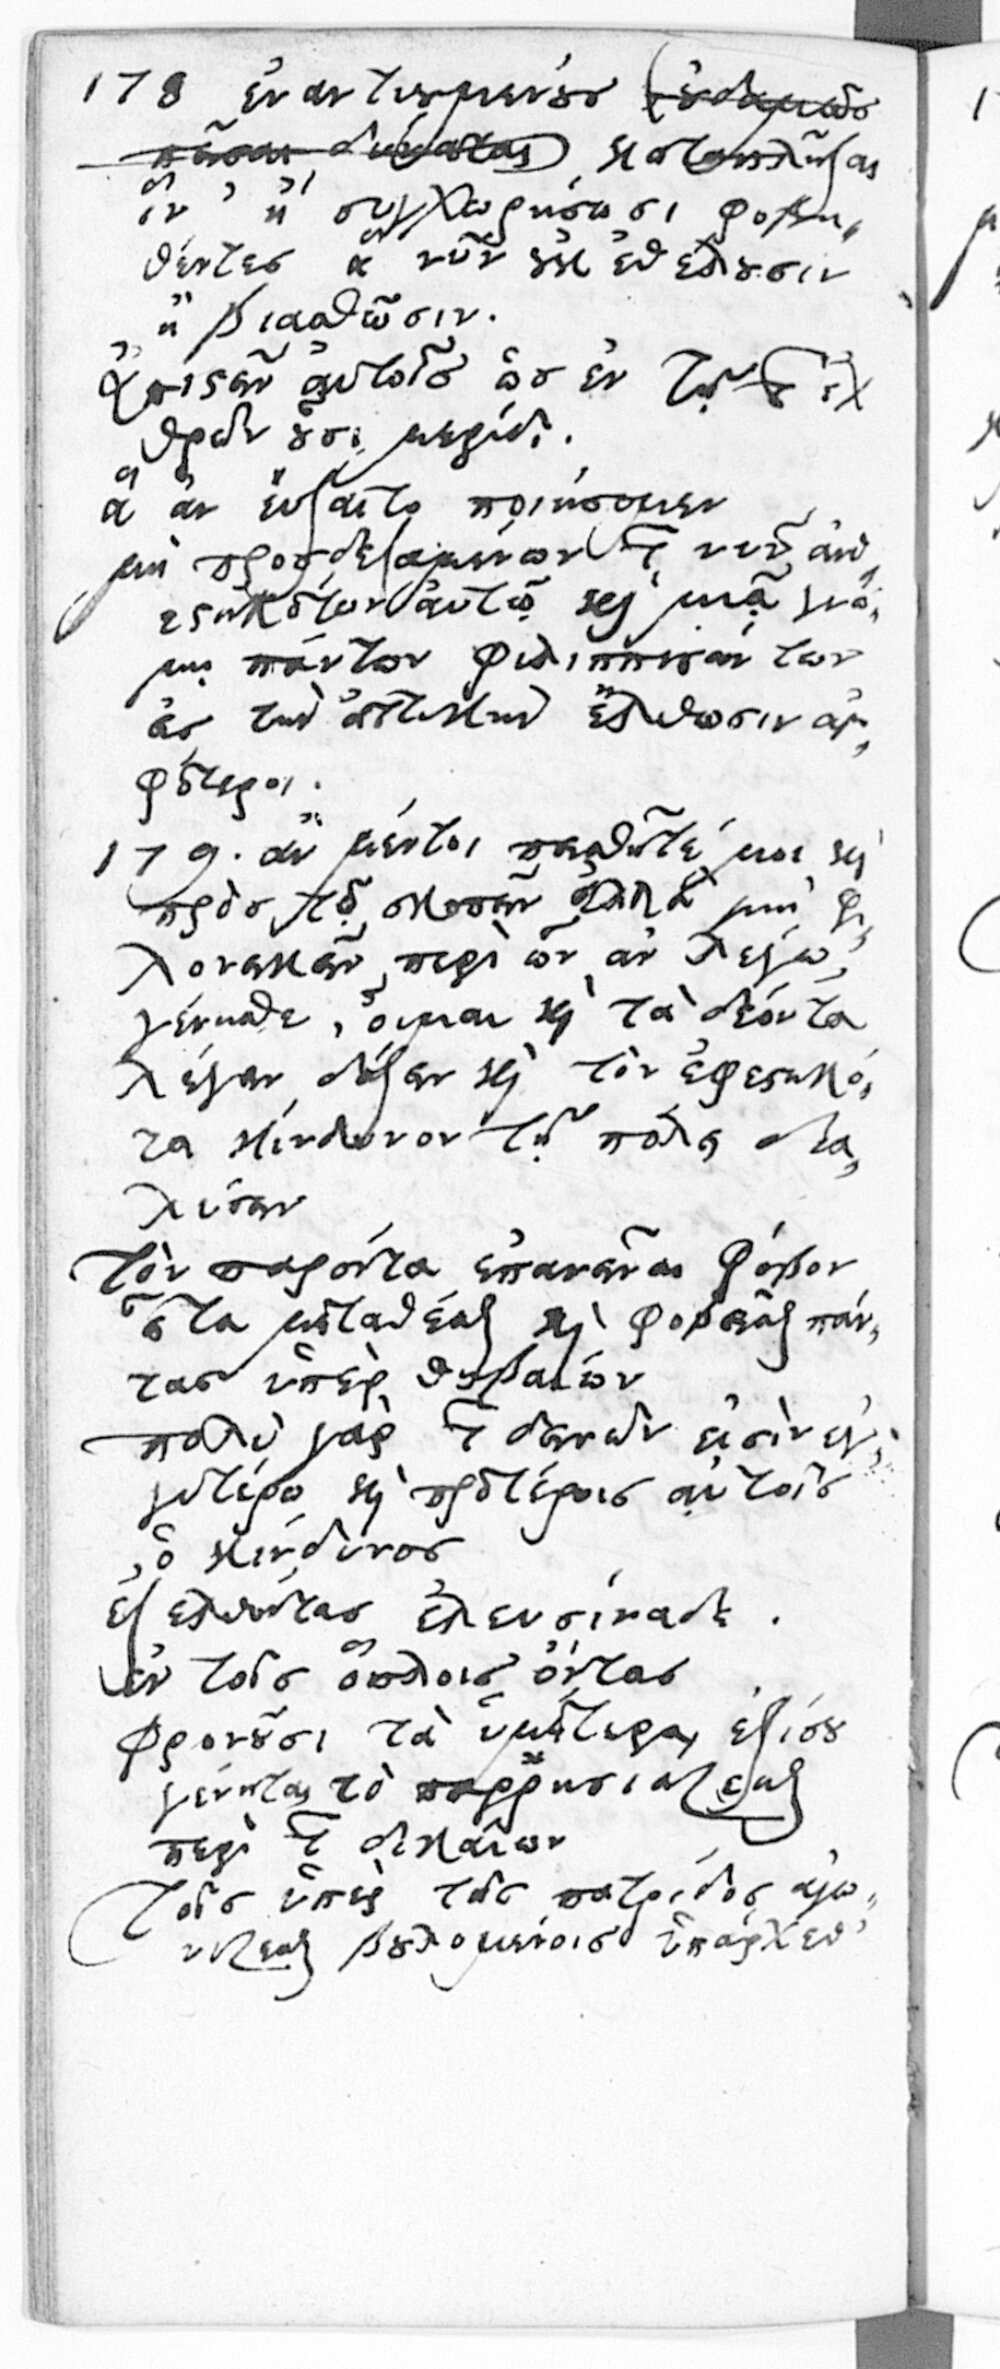 178 ἐναντιουμένους (οὐδαμῶς
πεῖσαι δύναται) καταπλῆξαι
ἵν' ἢ συγχωρήσωσι φοβη-
θέντες ἃ νῦν οὐκ ἐθέλουσιν
ἢ βιασθῶσιν.
ἀπιστεῖν αὐτοῖς ὡς ἐν τῇ τῶν ἐχ
θρῶν οὖσι μερίδι.
ἃ ἂν εὔξαιτο ποιήσομεν
μὴ προσδεξαμένων τῶν νῦν ἀνθ-
εστηκότων αὐτῷ καὶ μιᾷ γνώ-
μῃ πάντων φιλιππισάντων
εἰς τὴν ἀττικὴν ἔλθωσιν ἀμ-
φότεροι.
179. ἂν μέντοι πεισθῆτέ μοι καὶ
πρὸς τῷ σκοπεῖν ἀλλὰ μὴ φι-
λονεικεῖν περὶ ὧν ἂν λέγω
γένησθε, οἶμαι καὶ τὰ δέοντα
λέγειν δόξειν καὶ τὸν ἐφεστηκό-
τα κίνδυνον τῇ πόλει δια-
λύσειν
τὸν παρόντα ἐπανεῖναι φόβον
εἶτα μεταθέσθαι καὶ φοβεῖσθαι πάν-
τας ὑπὲρ θηβαίων
πολὺ γὰρ τῶν δεινῶν εἰσὶν ἐγ-
γυτέρω καὶ προτέροις αὐτοῖς
ὁ κίνδυνος
ἐξελθόντας ἐλευσίναδε.
ἐν τοῖς ὅπλοις ὄντας
φρονοῦσι τὰ ὑμέτερα, ἐξίσου
γένηται τὸ παρρησιάζεσθαι
περὶ τῶν δικαίων
τοῖς ὑπὲρ τῆς πατρίδος ἀγω-
νίζεσθαι βουλομένοις ὑπάρχεθ'